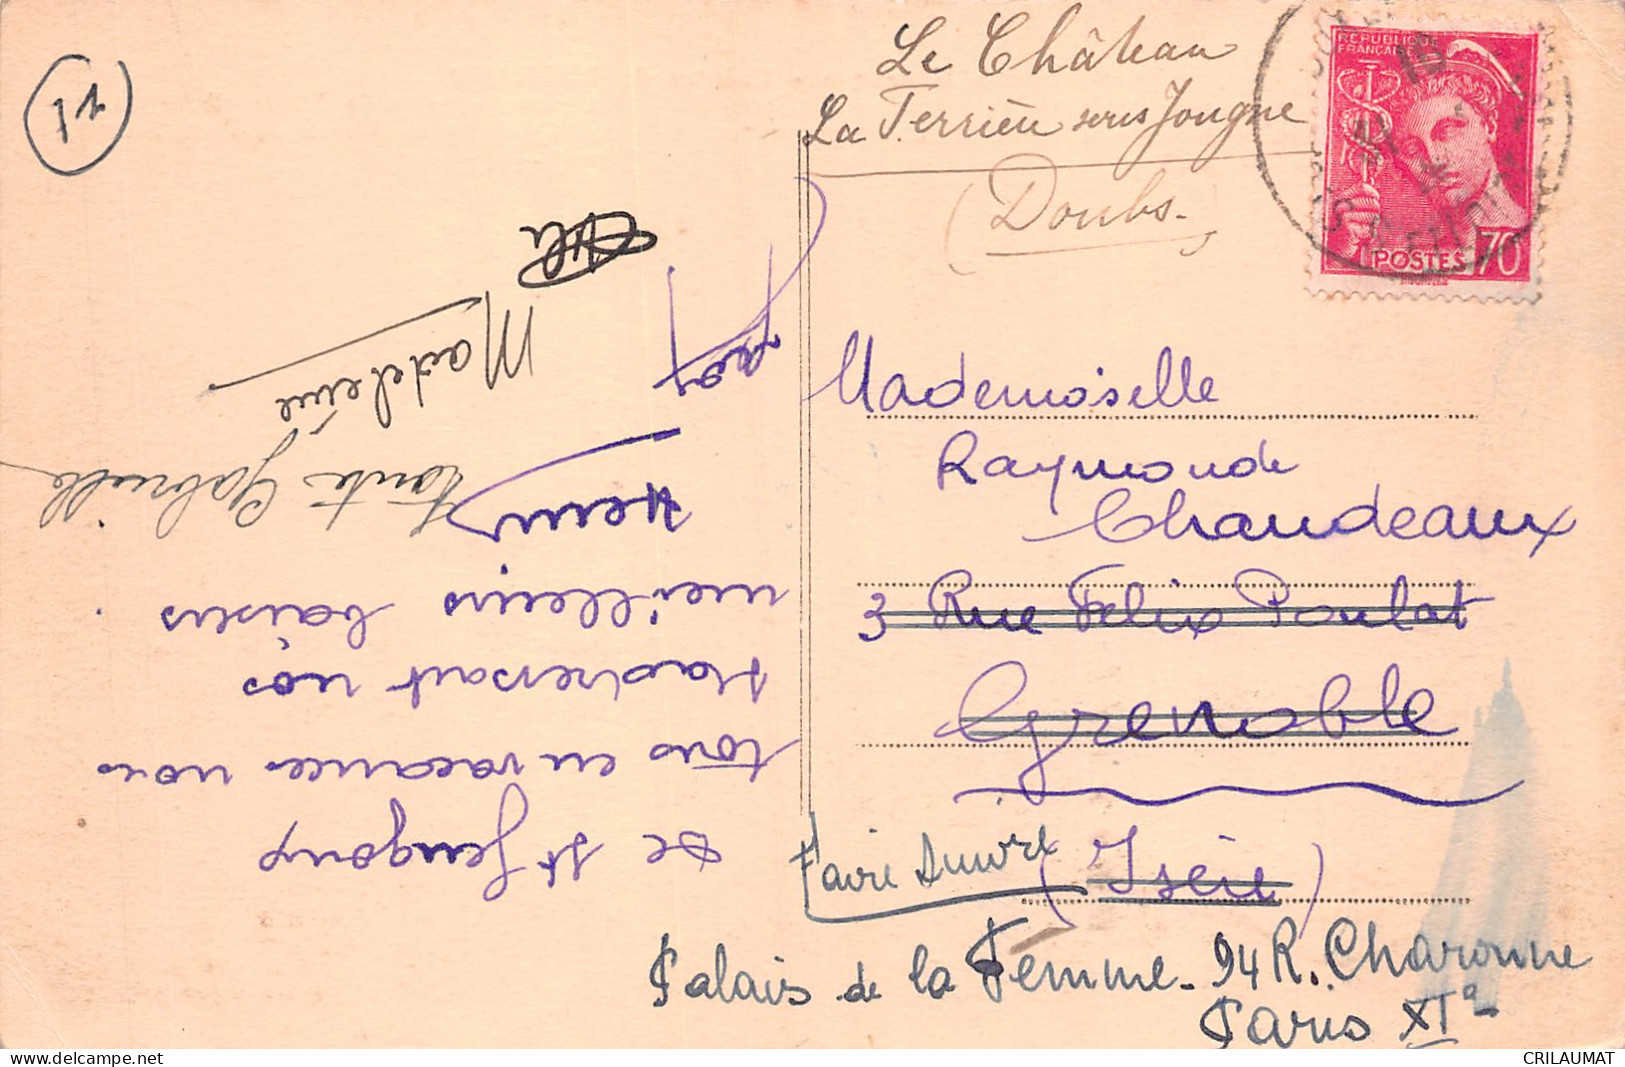 11
Le Château
La Ferrière sous Jougne
(Doubs.)
RÉPUBLIQUE
FRANÇAISE
POSTES 70
Mademoiselle
Raymonde
Chaudeaux
3 Rue Felix Poulat
Grenoble
(Isère)
Faire suivre
Palais de la Femme - 94 R. Charonne
Paris XIe
De St Gengoux
tous en vacances nous
t'adressant nos
meilleurs baisers.
Tante Gabrielle
Madeleine
CRILAUMAT